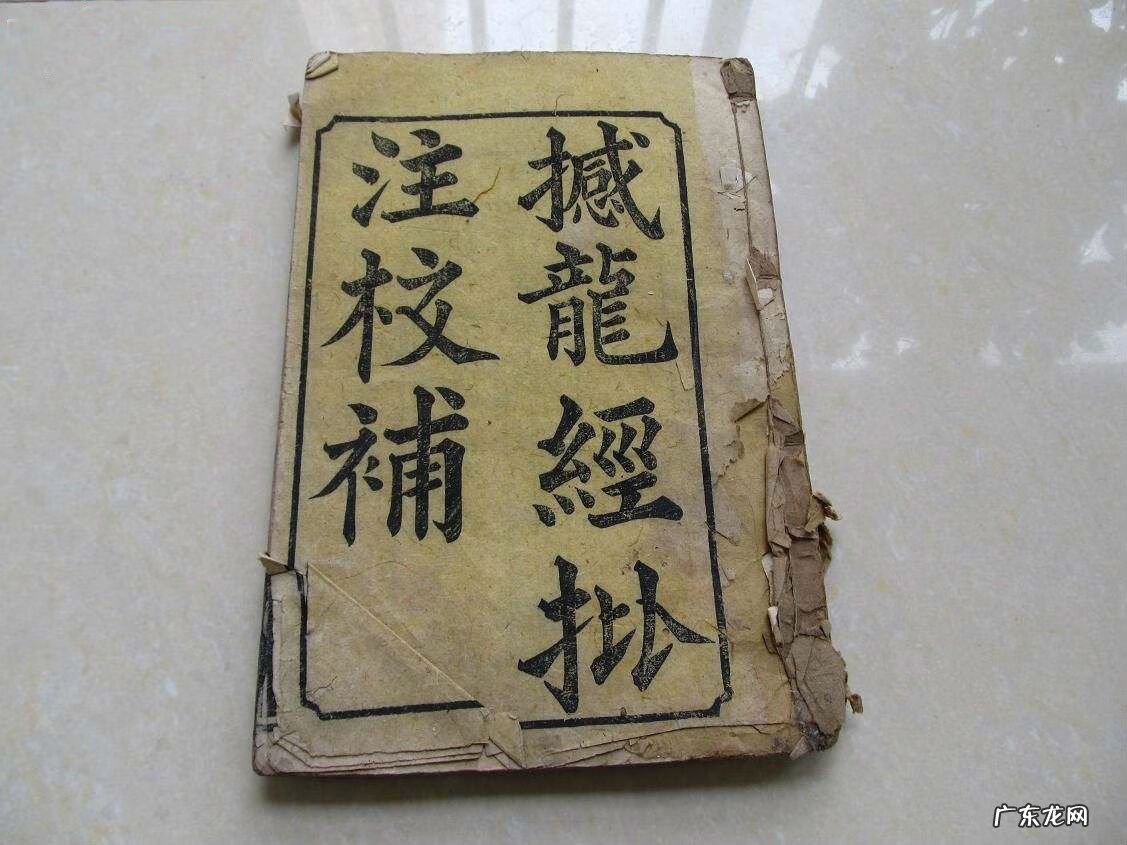 撼龍經批
注校補
广东龙网